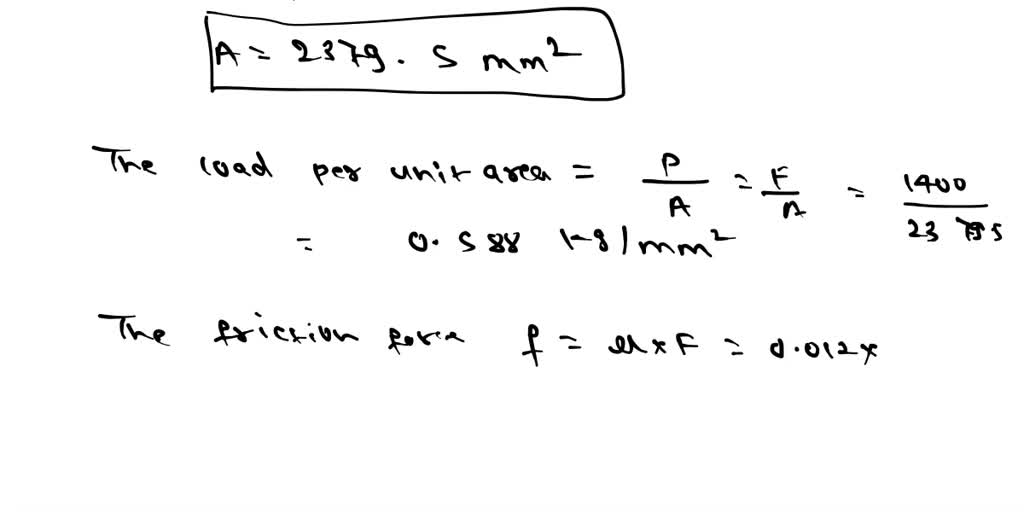 A = 2379.5 mm²
The load per unit area = P/A = F/A = 1400/2379.5
= 0.588 kg/mm²
The friction force f = μ x F = 0.012 x